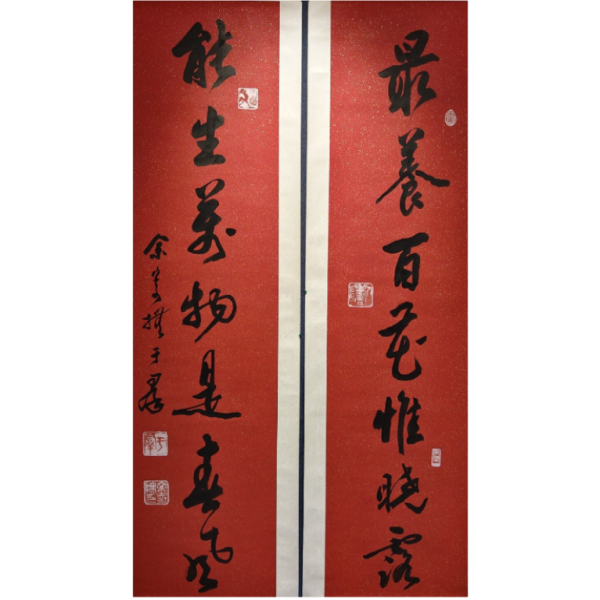 最養百花惟曉露
能生萬物是春風